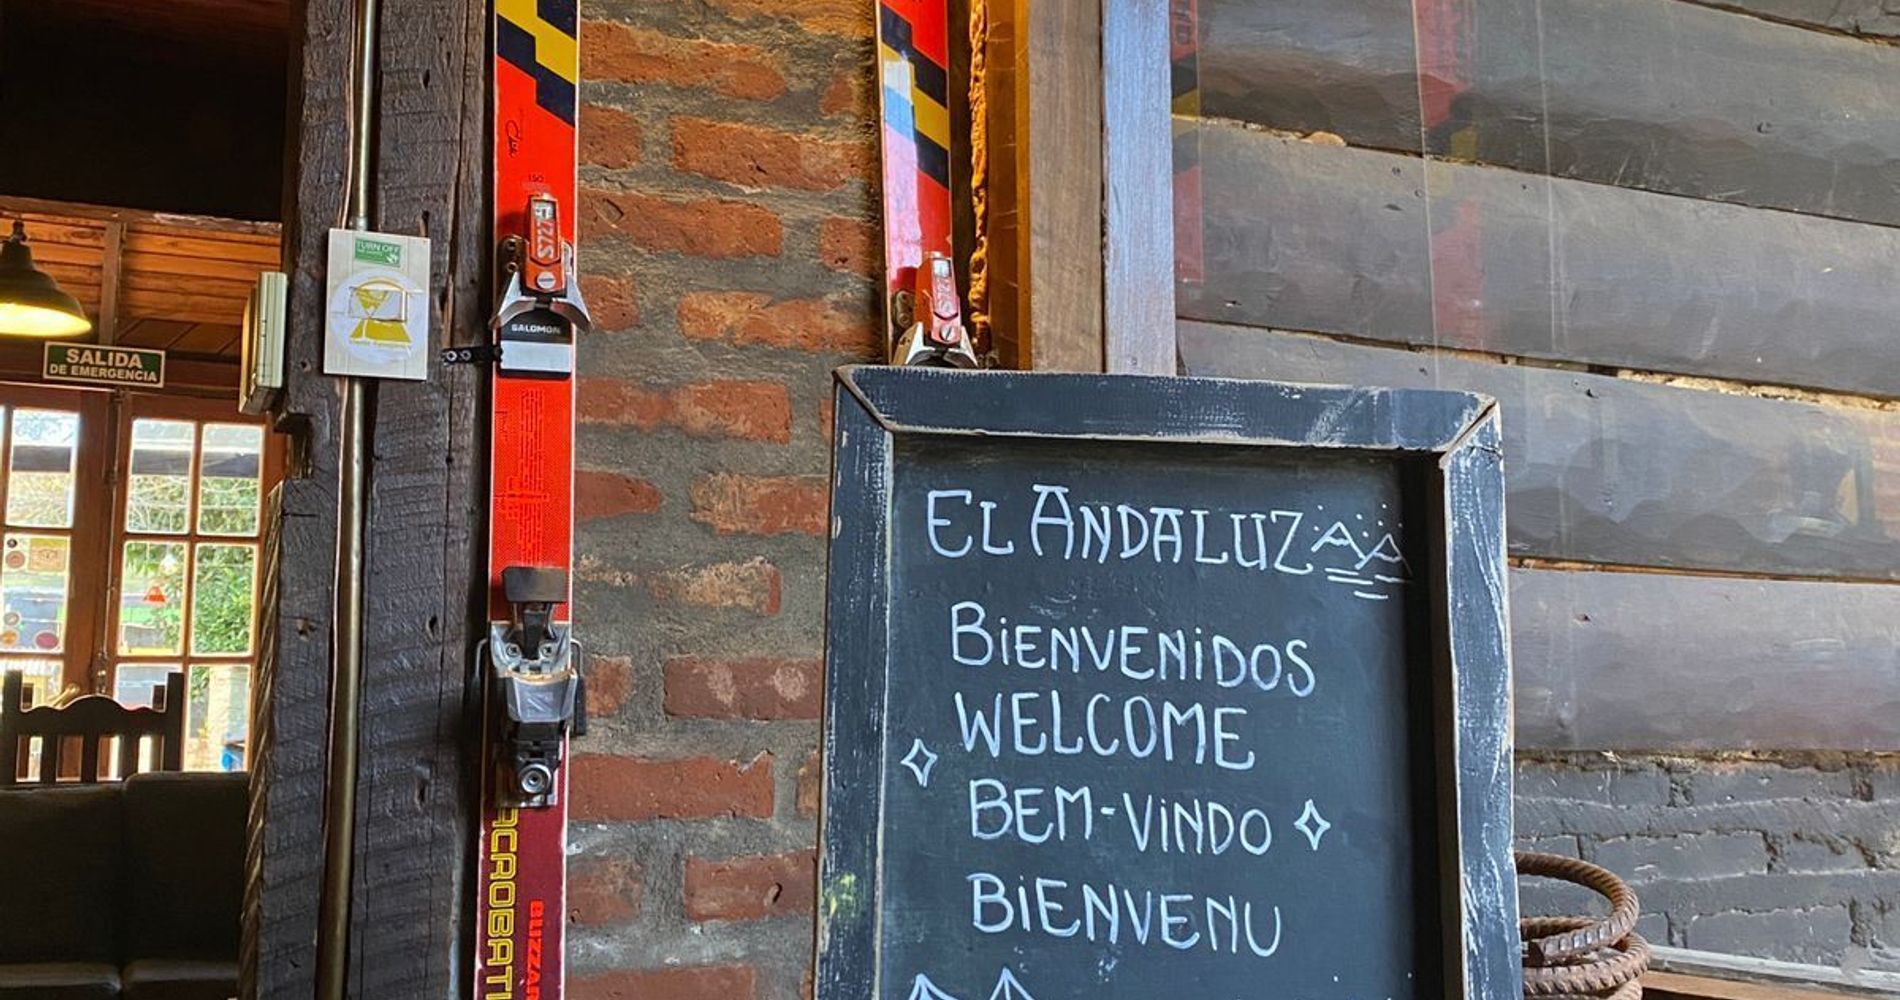 TURN OFF
SALIDA
DE EMERGENCIA
150
S727
SALOMON
S727
ACROBATI
BLIZZAR
EL ANDALUZ
BiENVENiDOS
WELCOME
BEM-ViNDO
BiENVENU